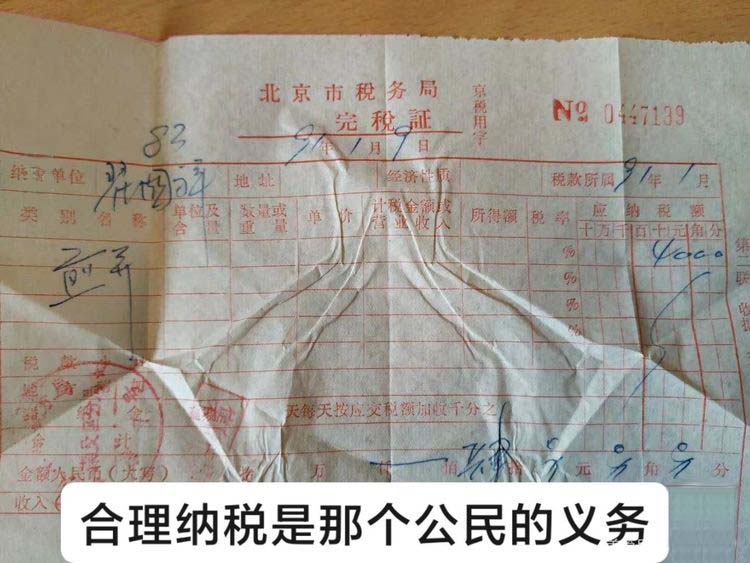 北京市税务局
京税用字
完税証
№ 0447139
83
91年1月9日
纳税单位 地址 经济性质 税款所属91年1月
类别名称 单位及含量 数量或重量 单价 计税金额或营业收入 所得额 税率 应纳税额
十万千百十元角分
煎并 % 4000
%
%
%
税款
天每天按应交税额加收千分之
金额人民币（大写） 拾 万 佰 肆拾 0元 0角 0分
收入
合理纳税是那个公民的义务